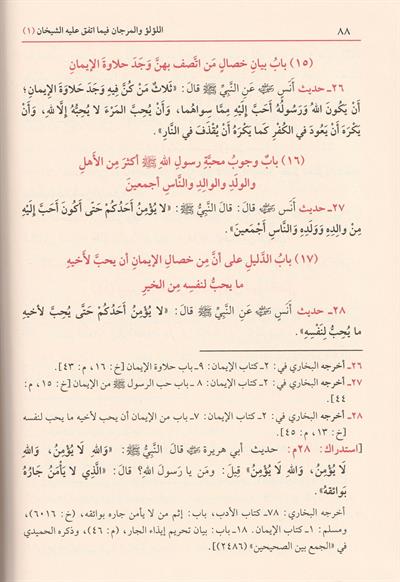 ٨٨ اللؤلؤ والمرجان فيما اتفق عليه الشيخان (١)
(١٥) بابُ بيانِ خصالٍ مَن اتَّصف بهنَّ وَجَدَ حلاوةَ الإيمانِ
٢٦ـ حديث أَنَسٍ ﵁ عَنِ النَّبِيِّ ﷺ قَالَ: «ثَلَاثٌ مَنْ كُنَّ فِيهِ وَجَدَ حَلَاوَةَ الإِيمَانِ؛
أَنْ يَكُونَ اللهُ وَرَسُولُهُ أَحَبَّ إِلَيْهِ مِمَّا سِوَاهُمَا، وَأَنْ يُحِبَّ المَرْءَ لَا يُحِبُّهُ إِلَّا لِلَّهِ، وَأَنْ
يَكْرَهَ أَنْ يَعُودَ فِي الكُفْرِ كَمَا يَكْرَهُ أَنْ يُقْذَفَ فِي النَّارِ».
(١٦) بابُ وجوبُ محبَّةِ رسولِ اللهِ ﷺ أكثرَ مِن الأهلِ
والولَدِ والوالِدِ والنَّاسِ أجمعينَ
٢٧ـ حديث أَنَسٍ ﵁ قَالَ: قَالَ النَّبِيُّ ﷺ: «لا يُؤْمِنُ أَحَدُكُمْ حَتَّى أَكُونَ أَحَبَّ إِلَيْهِ
مِنْ وَالِدِهِ وَوَلَدِهِ وَالنَّاسِ أَجْمَعِينَ».
(١٧) بابُ الدَّليلِ على أنَّ مِن خصالِ الإيمانِ أن يحبَّ لأخيهِ
ما يحبُّ لنفسِهِ مِن الخيرِ
٢٨ـ حديث أَنَسٍ ﵁ عَنِ النَّبِيِّ ﷺ قَالَ: «لا يُؤْمِنُ أَحَدُكُمْ حَتَّى يُحِبَّ لأَخِيهِ
مَا يُحِبُّ لِنَفْسِهِ».
٢٦ـ أخرجه البخاري في: ٢ـ كتاب الإيمان: ٩ـ باب حلاوة الإيمان [خ: ١٦، م: ٤٣].
٢٧ـ أخرجه البخاري في: ٢ـ كتاب الإيمان: ٨ ـ باب حب الرسول ﷺ من الإيمان [خ: ١٥، م:
٤٤].
٢٨ـ أخرجه البخاري في: ٢ـ كتاب الإيمان: ٧ـ باب من الإيمان أن يحب لأخيه ما يحب لنفسه
[خ: ١٣، م: ٤٥].
[استدراك: ٢٨م: حديث أبي هريرة ﵁ قالَ: قالَ النَّبِيُّ ﷺ: «وَاللهِ لَا يُؤْمِنُ، وَاللهِ
لَا يُؤْمِنُ، وَاللهِ لَا يُؤْمِنُ» قِيلَ: ومَن يا رَسولَ اللهِ؟ قالَ: «الَّذِي لَا يَأْمَنُ جَارُهُ
بَوَائقَهُ».
أخرجه البخاري: ٧٨ـ كتاب الأدب، باب: إثم من لا يأمن جاره بوائقه، (خ، ٦٠١٦)،
ومسلم: ١ـ كتاب الإيمان. ١٨ـ باب: بيان تحريم إيذاء الجار، (م: ٤٦)، وذكره الحميدي
في «الجمع بين الصحيحين» (٢٤٨٦)].